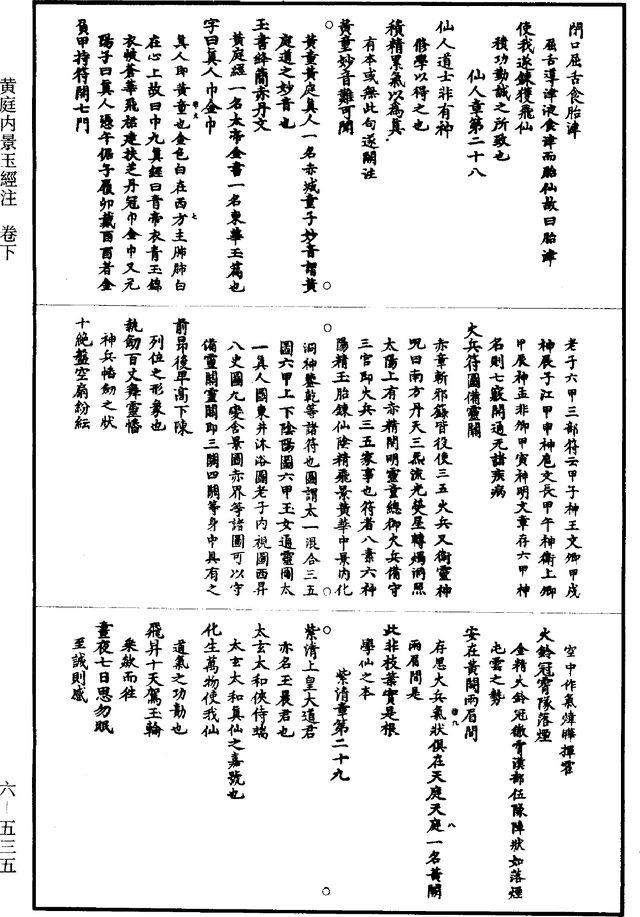 閉口屈舌食胎津
屈舌導津液食津而胎仙故曰胎津
使我遂鍊獲飛仙
積功勤誠之所致也
仙人章第二十八
仙人道士非有神
脩學以得之也
積精累氣以為真
有本或無此句遂闕注
黃童妙音難可聞
黃童黃庭真人一名赤城童子妙音謂黃
庭道之妙音也
玉書絳簡赤丹文
黃庭經一名太帝金書一名東華玉篇也
字曰真人巾金巾
真人即黃童也金色白在西方主肺肺白
在心上故曰巾九真經曰青帝衣青玉錦
衣帔蒼華飛裙建扶芝丹冠巾金巾又元
陽子曰真人憑午偃子履卯戴酉酉者金
負甲持符開七門
老子六甲三部符云甲子神王文卿甲戌
神展子江甲申神扈文長甲午神衛上卿
甲辰神孟非卿甲寅神明文章存六甲神
名則七竅開通无諸疾病
火兵符圖備靈關
赤章斬邪籙皆役使三五火兵又衛靈神
呪曰南方丹天三炁流光熒星轉燭洞照
太陽上有赤精開明靈童總御火兵備守
三官即火兵三五家事也符者八素六神
陽精玉胎鍊仙陰精飛景黃華中景內化
洞神鑒乾等諸符也圖謂太一混合三五
圖六甲上下陰陽圖六甲玉女通靈圖太
一真人圖東井沐浴圖老子內視圖西昇
八史圖九變含景圖赤界等諸圖可以守
備靈關靈關即三關四關等身中具有之
前昂後卑高下陳
列位之形象也
執劒百丈舞靈幡
神兵幡劒之狀
十絕盤空扇紛紜
空中作氣煒曄揮霍
火鈴冠霄隊落煙
金精火鈴冠徹霄漢部伍隊陣狀如落煙
屯雲之勢
安在黃闕兩眉間
存思火兵氣狀俱在天庭天庭一名黃闕
兩眉間是
此非枝葉實是根
學仙之本
紫清章第二十九
紫清上皇大道君
亦名玉晨君也
太玄太和俠侍端
太玄太和真仙之嘉號也
化生萬物使我仙
道氣之功勤也
飛昇十天駕玉輪
乘歘而往
晝夜七日思勿眠
至誠則感
黃庭內景玉經注　卷下
六—五三五